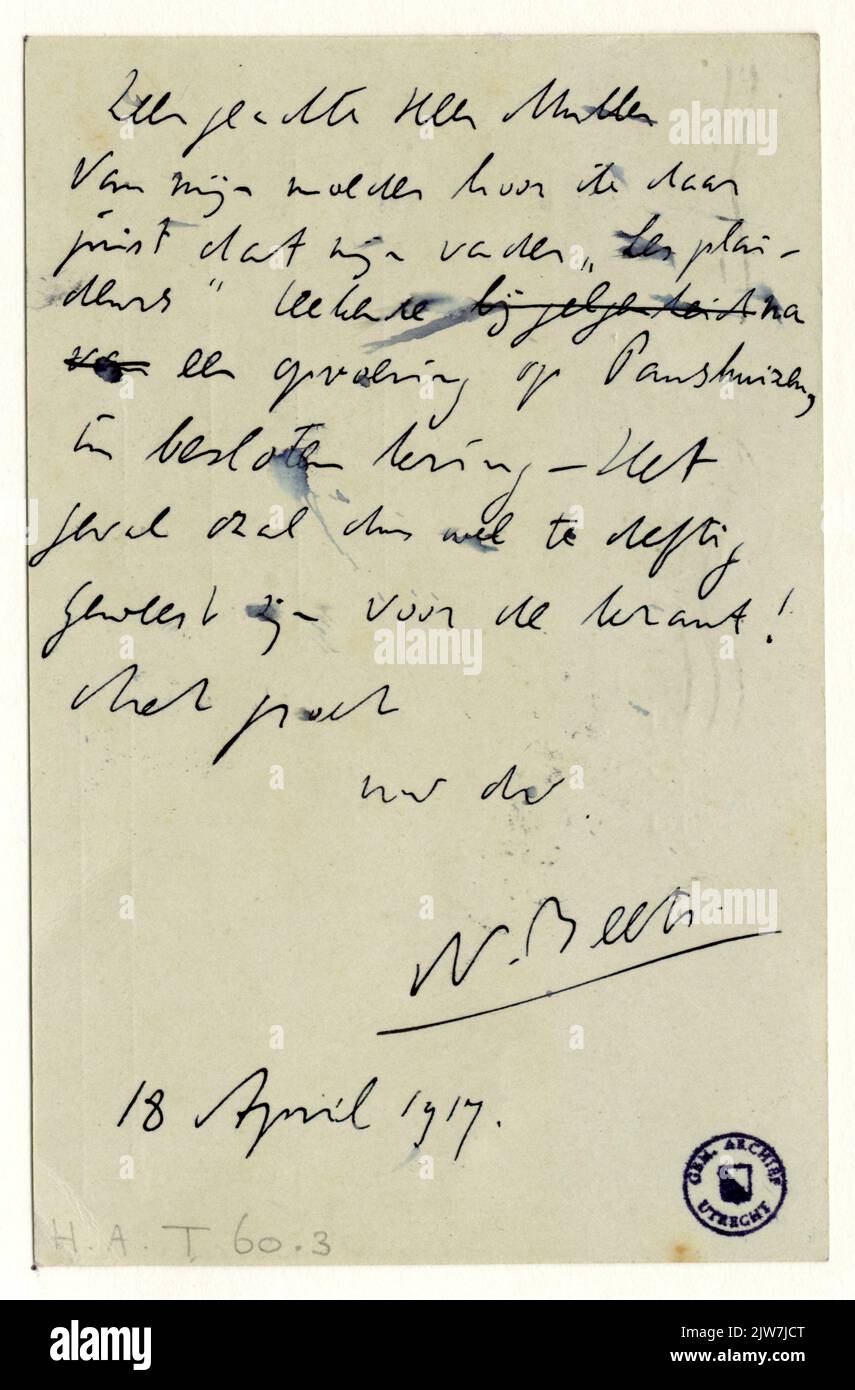 Zeer geachte Heer Muller
Van mijn moeder hoor ik daar
juist dat mijn vader „Les plai-
deurs" teekende bij gelegenheid na
van een opvoering op Paushuizen
in besloten kring – Het
geval zal dus wel te deftig
geweest zijn voor de krant!
Met groet
uw dw.
N. Beets.
18 April 1917.
GEM. ARCHIEF
UTRECHT
H.A. T 60.3
alamy
Image ID: 2JW7JCT
www.alamy.com